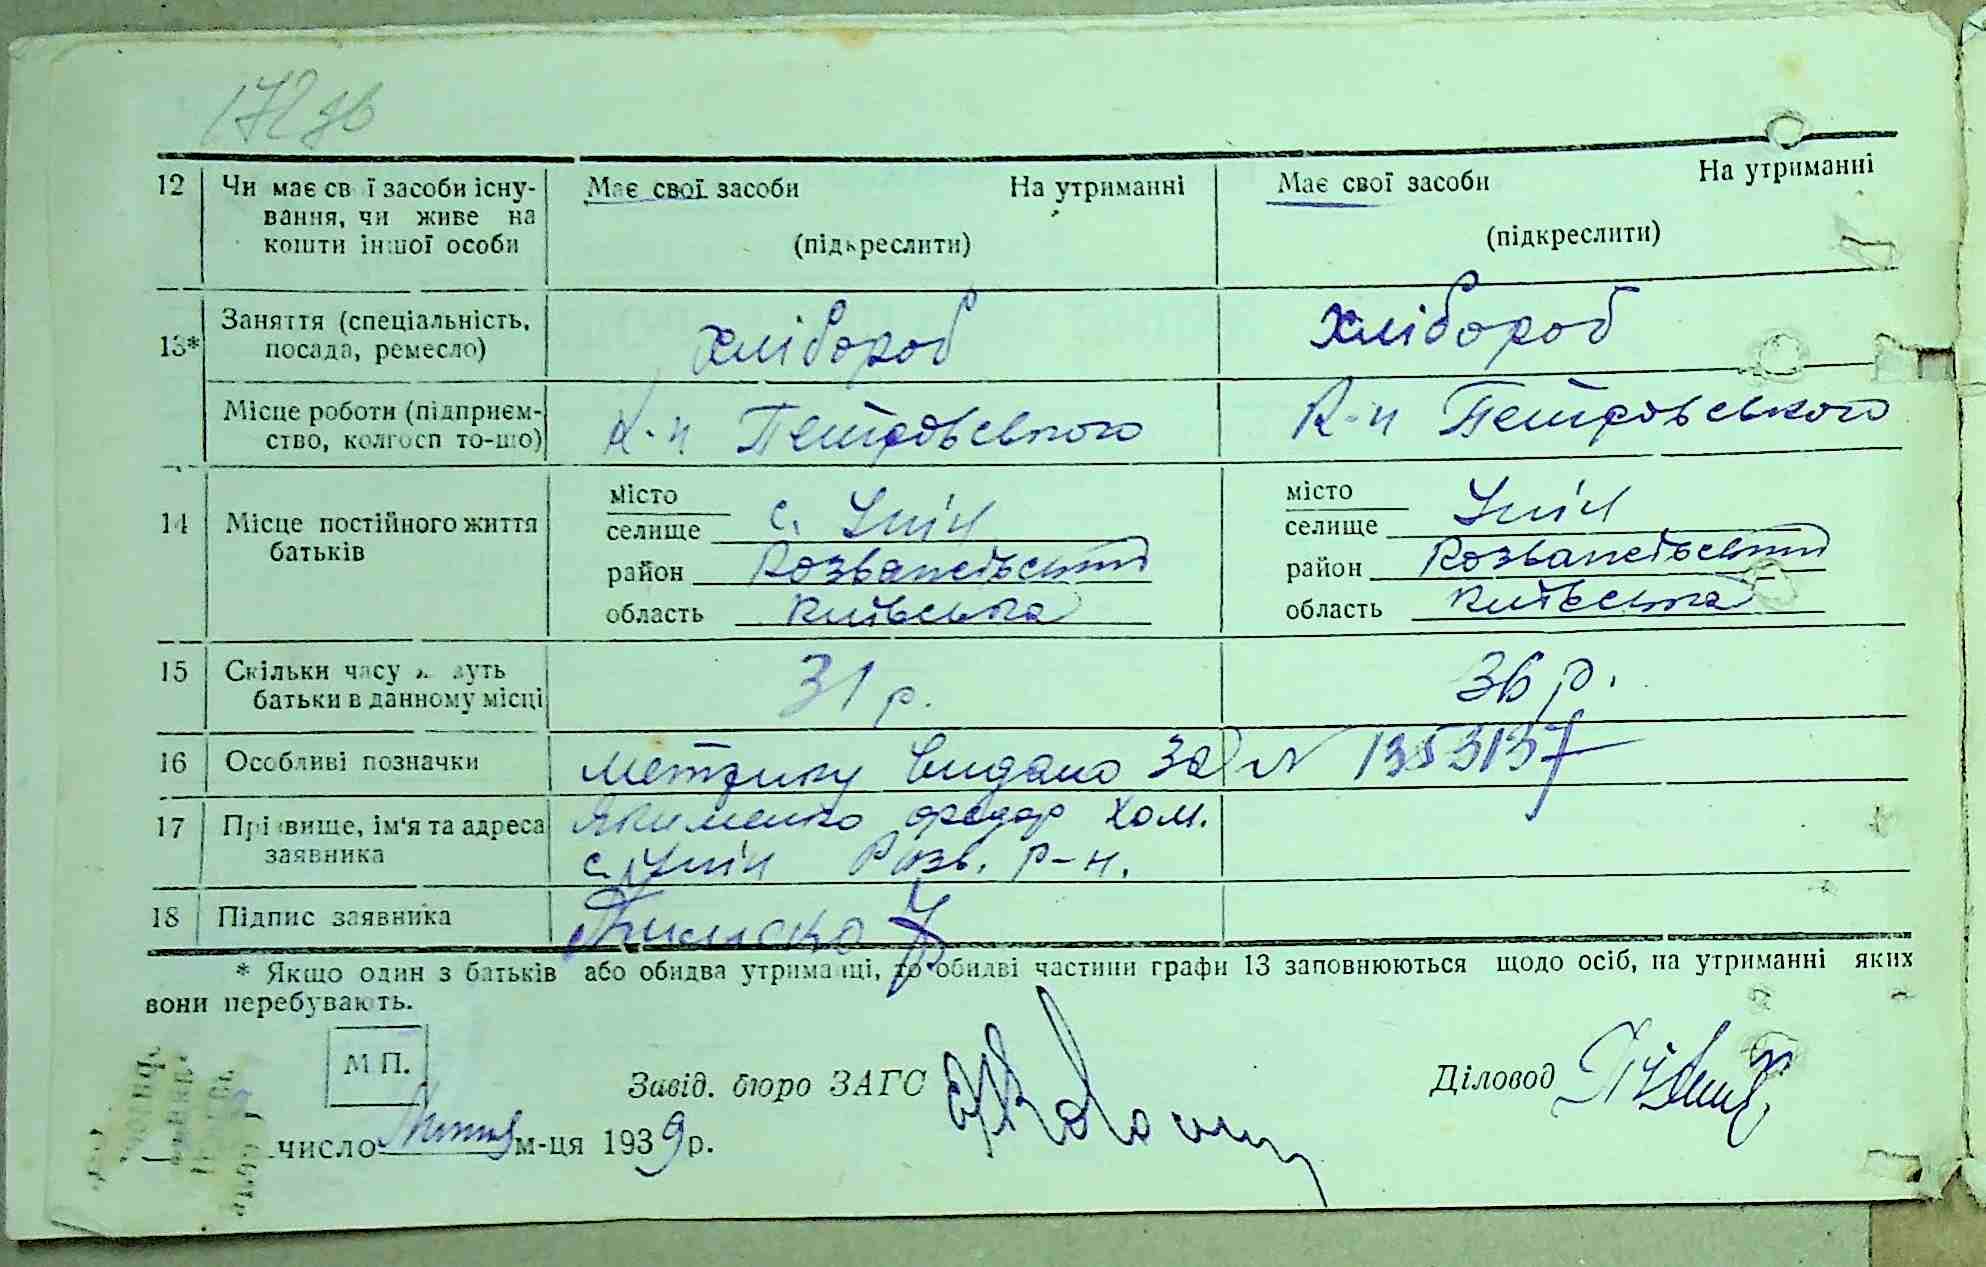 172 зв
12 Чи має свої засоби існу- Має свої засоби На утриманні Має свої засоби На утриманні
вання, чи живе на
кошти іншої особи (підкреслити) (підкреслити)
13* Заняття (спеціальність, посада, ремесло) хлібороб хлібороб
Місце роботи (підприєм- К-п Петровського К-п Петровського
ство, колгосп то-що)
14 Місце постійного життя батьків
місто місто
селище с. Уніч селище Уніч
район Розважевський район Розважевський
область Київська область Київська
15 Скільки часу живуть 31 р. 36 р.
батьки в данному місці
16 Особливі позначки метрику видано за № 1353137
17 Прізвище, ім'я та адреса Якименко Федор Хом.
заявника с. Уніч Розв. р-н.
18 Підпис заявника
* Якщо один з батьків або обидва утриманці, то обидві частини графи 13 заповнюються щодо осіб, на утриманні яких
вони перебувають.
М П.
Завід. бюро ЗАГС Діловод
число Липня м-ця 1939 р.